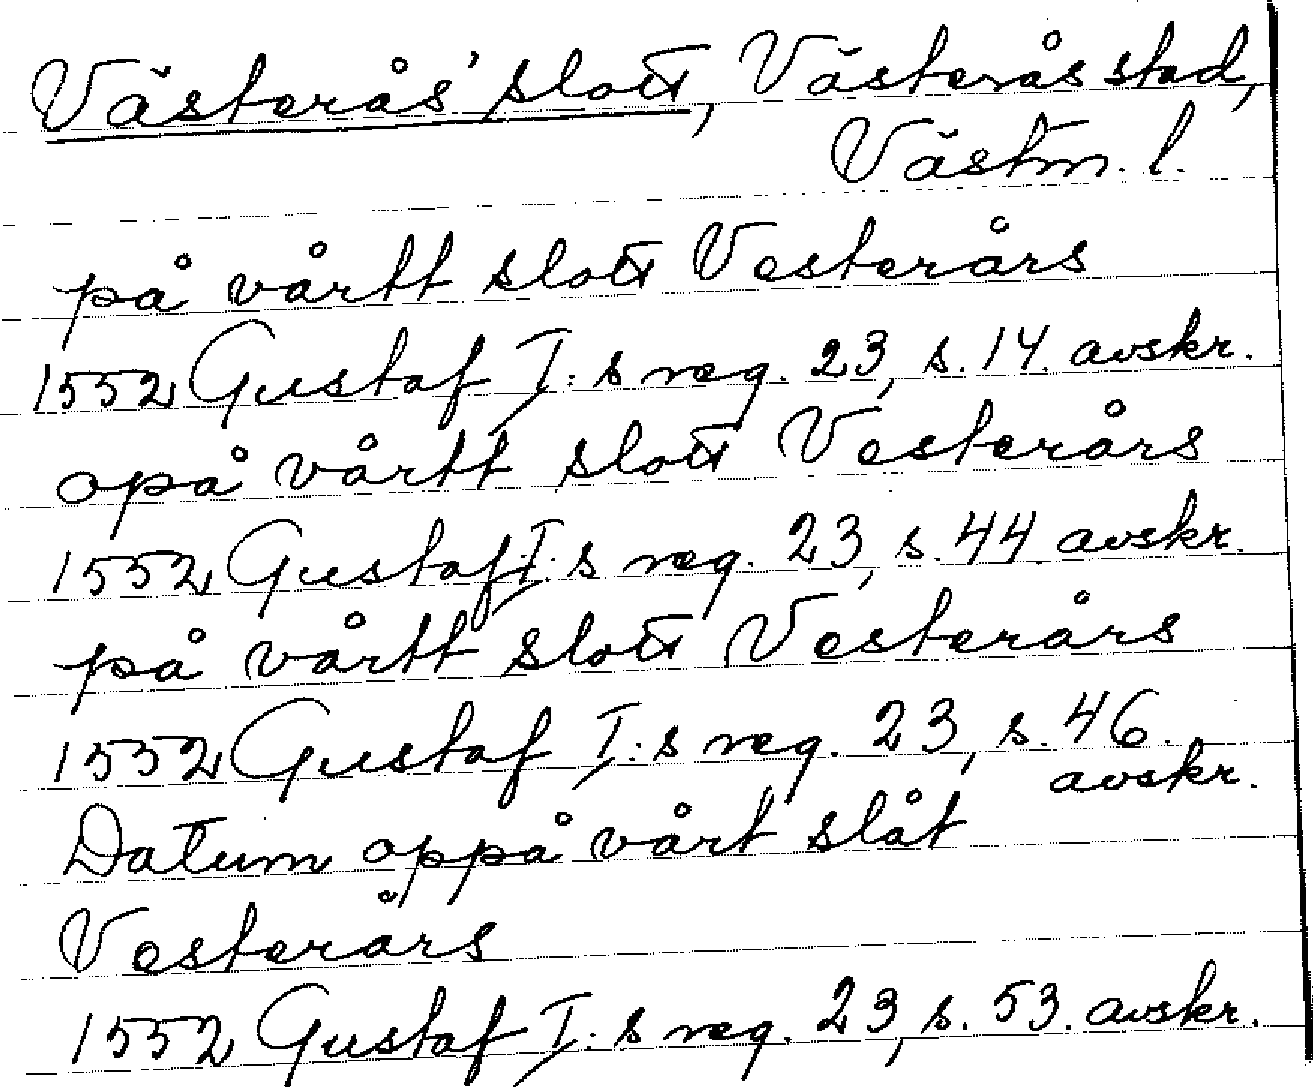 Västerås' slott, Västerås stad,
Västm. l.
på vårtt slott Vesterårs
1552 Gustaf I:s reg. 23, s. 14. avskr.
opå vårtt slott Vesterårs
1552 Gustaf I:s reg. 23, s. 44. avskr.
på vårtt slott Vesterårs
1552 Gustaf I:s reg. 23, s. 46.
avskr.
Datum oppå vårt slåt
Vesterårs
1552 Gustaf I:s reg. 23, s. 53. avskr.